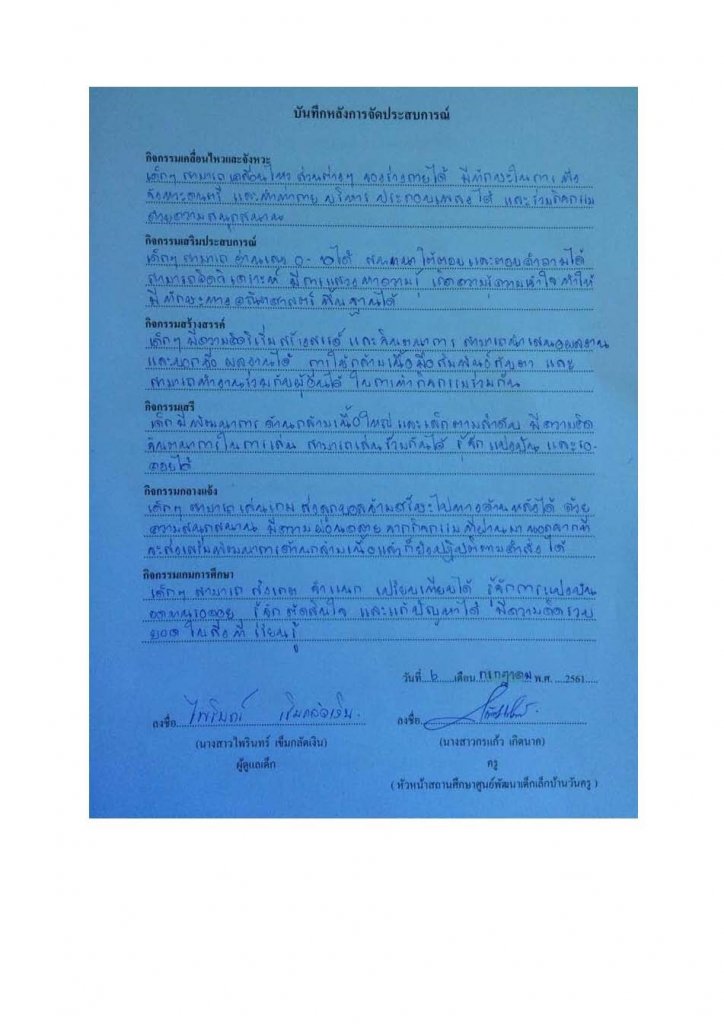 บันทึกหลังการจัดประสบการณ์
กิจกรรมเคลื่อนไหวและจังหวะ
เด็กๆ สามารถเคลื่อนไหว ส่วนต่างๆ ของร่างกายได้ มีทักษะในการฟัง
จังหวะดนตรี และทำท่ากายบริหาร ประกอบเพลงได้ และร่วมกิจกรรม
ด้วยความสนุกสนาน
กิจกรรมเสริมประสบการณ์
เด็กๆ สามารถ อ่านเลข 0 - 10 ได้ สนทนาโต้ตอบ และตอบคำถามได้
สามารถคิดวิเคราะห์ มีการแสวงหาความรู้ เกิดความรู้ความเข้าใจ ทำให้
มีทักษะทางคณิตศาสตร์ พื้นฐานได้
กิจกรรมสร้างสรรค์
เด็กๆ มีความคิดริเริ่มสร้างสรรค์ และจินตนาการ สามารถนำเสนอผลงาน
และบอกชื่อ ผลงานได้ การใช้กล้ามเนื้อมือสัมพันธ์กับตา และ
สามารถทำงานร่วมกับผู้อื่นได้ ในการทำกิจกรรมร่วมกัน
กิจกรรมเสรี
เด็กมีพัฒนาการ ด้านกล้ามเนื้อใหญ่ และเล็กตามลำดับ มีความคิด
จินตนาการในการเล่น สามารถเล่นร่วมกันได้ รู้จักแบ่งปัน และรอ-
คอยได้
กิจกรรมกลางแจ้ง
เด็กๆ สามารถเล่นเกม ส่งลูกบอลข้ามศรีษะไปทางด้านหลังได้ ด้วย
ความสนุกสนาน มีความผ่อนคลาย จากกิจกรรมที่ผ่านมา นอกจากที่
จะส่งเสริมพัฒนาการด้านกล้ามเนื้อแล้วก็ยังปฏิบัติตามคำสั่งได้
กิจกรรมเกมการศึกษา
เด็กๆ สามารถ สังเกต จำแนก เปรียบเทียบได้ รู้จักการแบ่งปัน
อดทนรอคอย รู้จักตัดสินใจ และแก้ปัญหาได้ มีความคิดรวบ
ยอด ในสิ่งที่เรียนรู้
วันที่ ๖ เดือน กรกฎาคม พ.ศ. 2561
ลงชื่อ ไพรินทร์ เข็มกลัดเงิน ลงชื่อ
(นางสาวไพรินทร์ เข็มกลัดเงิน) (นางสาวกรแก้ว เกิดนาค)
ผู้ดูแลเด็ก ครู
( หัวหน้าสถานศึกษาศูนย์พัฒนาเด็กเล็กบ้านวันครู )